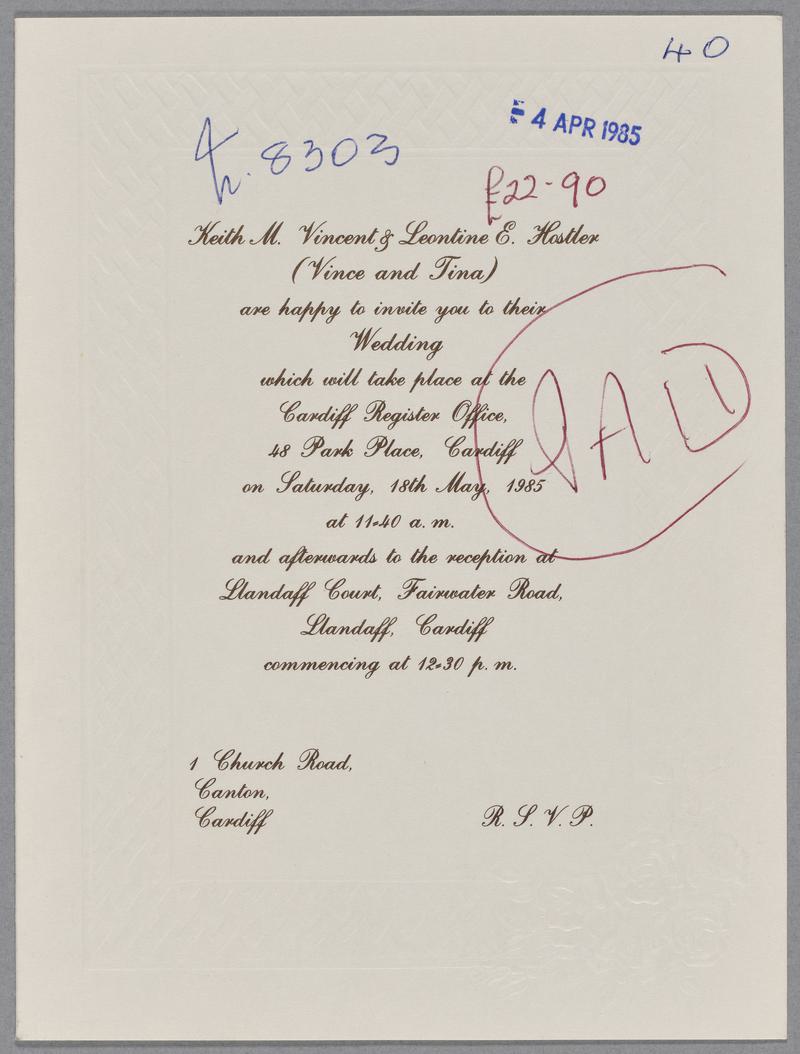 40
4 APR 1985
h. 8303
£22-90
Keith M. Vincent & Leontine E. Hostler
(Vince and Tina)
are happy to invite you to their
Wedding
which will take place at the
Cardiff Register Office,
48 Park Place, Cardiff
on Saturday, 18th May, 1985
at 11-40 a.m.
and afterwards to the reception at
Llandaff Court, Fairwater Road,
Llandaff, Cardiff
commencing at 12-30 p.m.
1 Church Road,
Canton,
Cardiff
R. S. V. P.